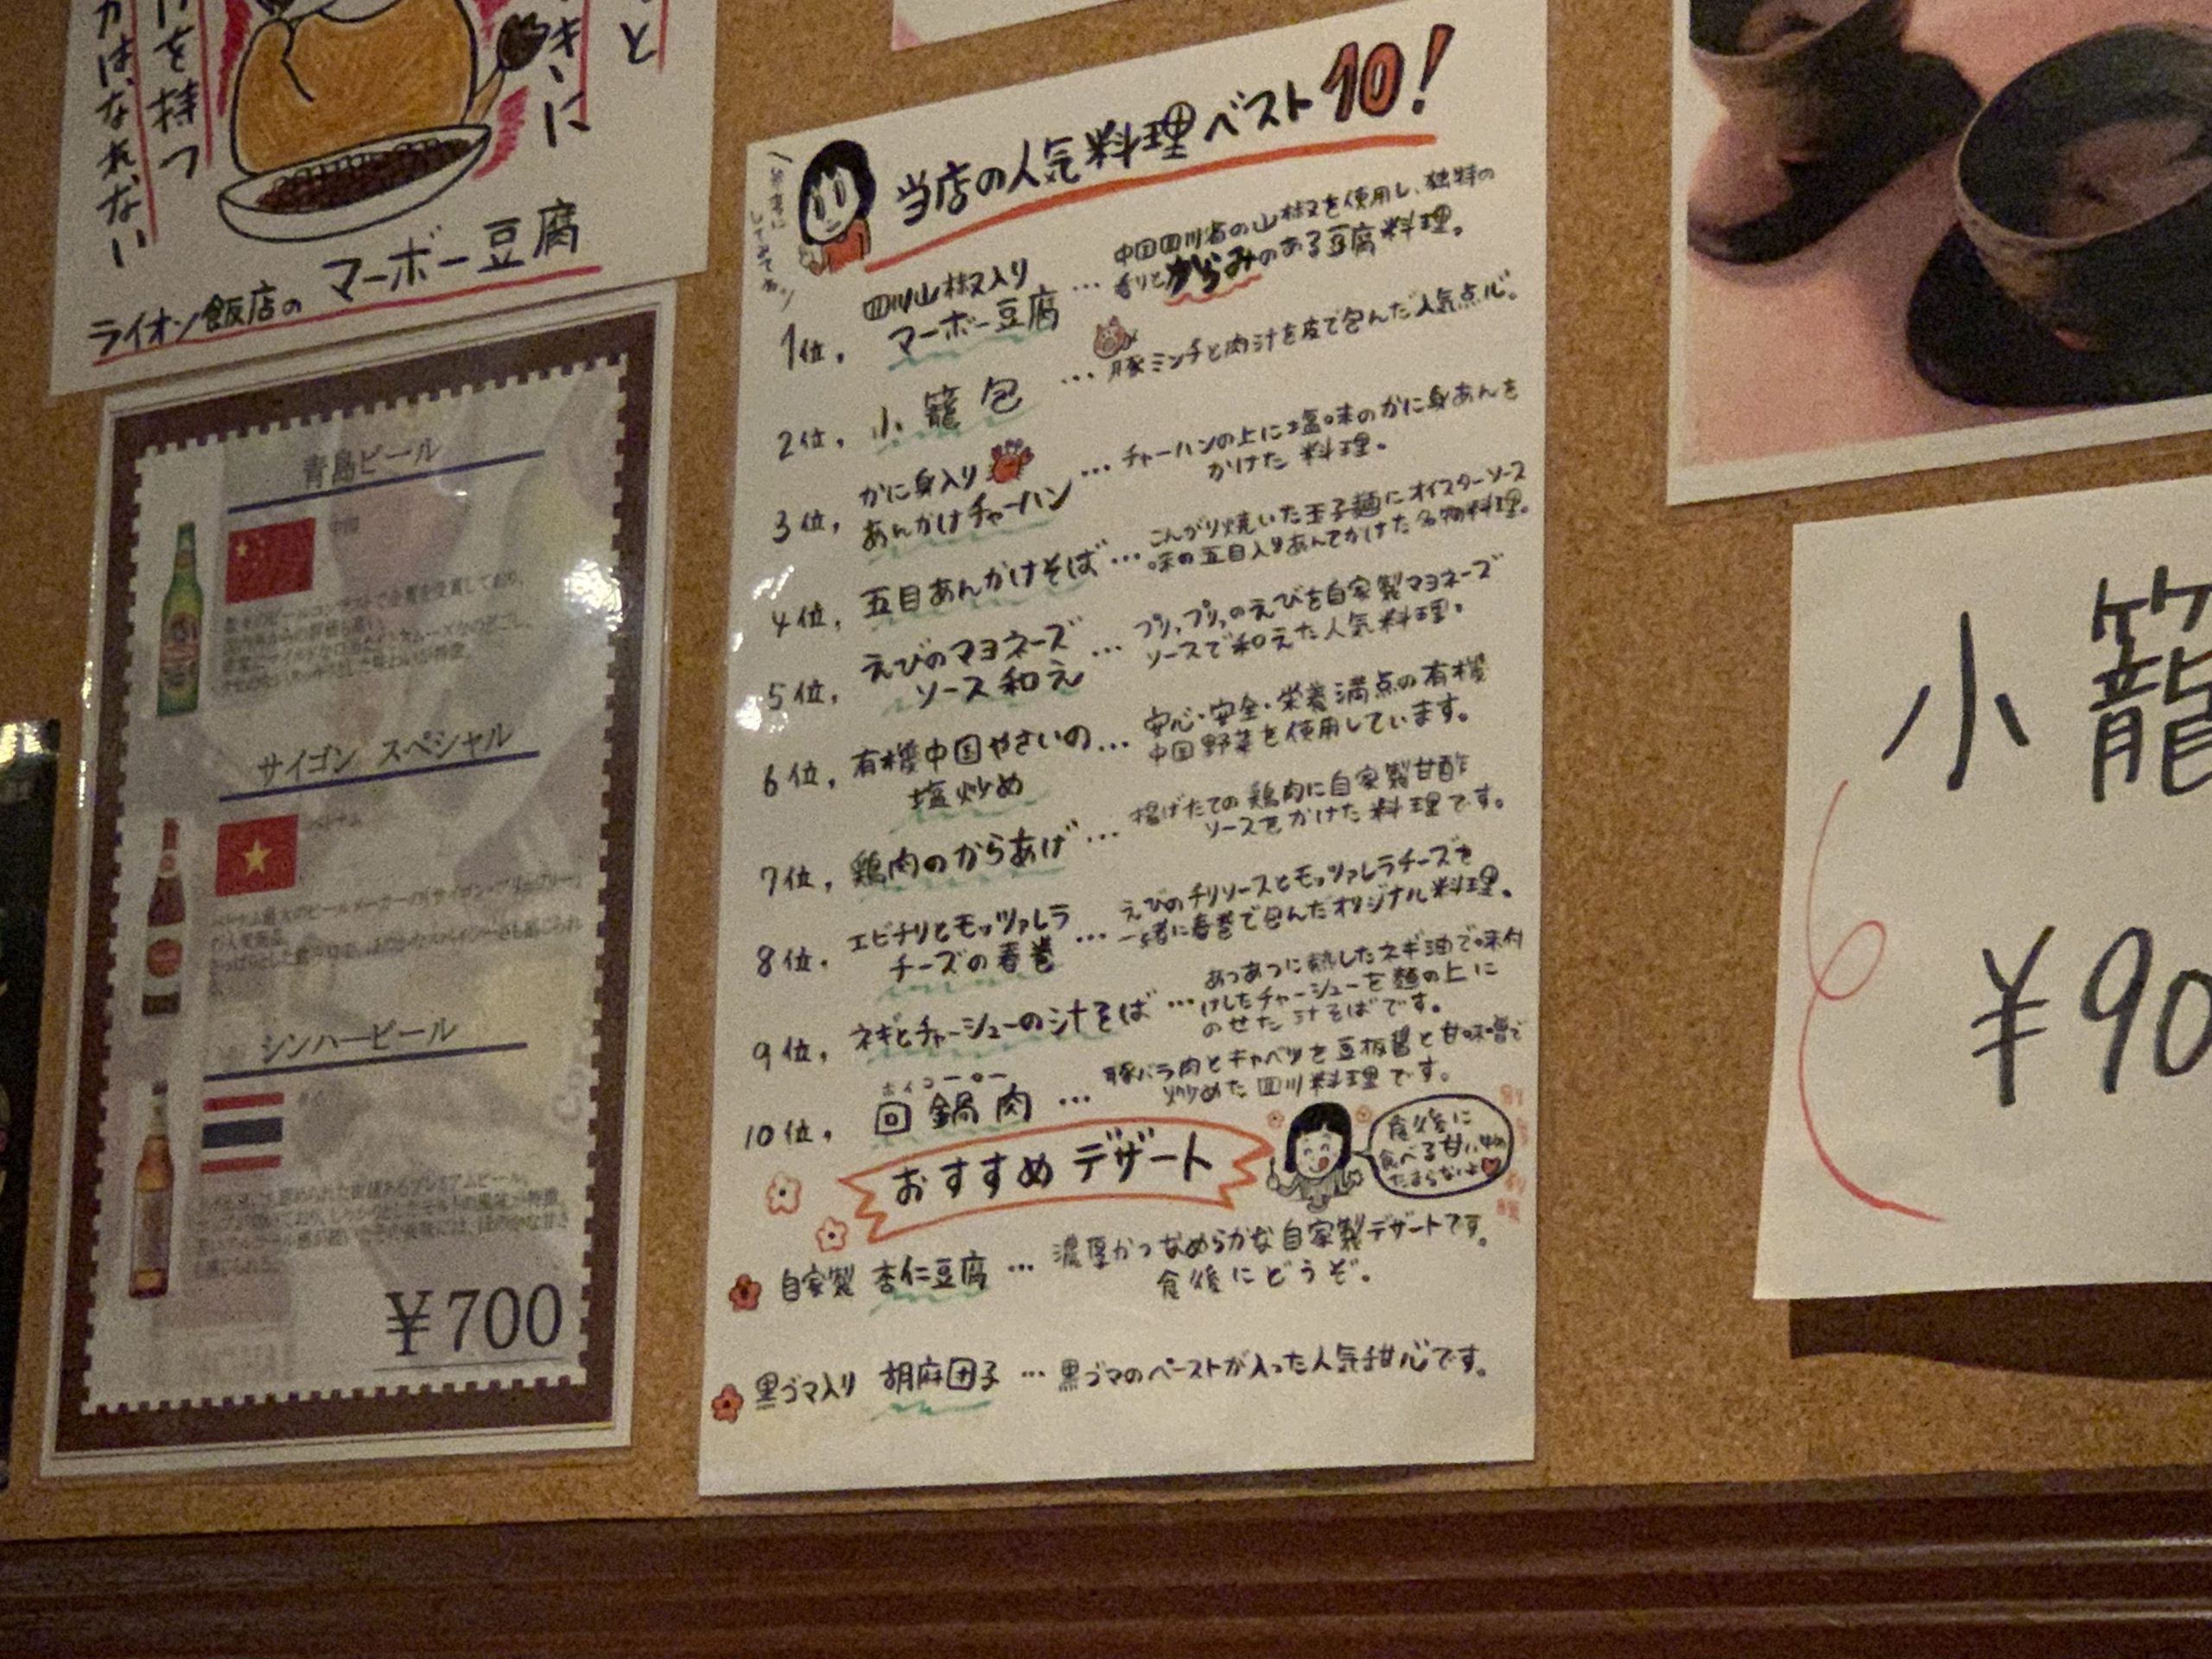 はなれない
を持つ
きいに
と
ライオン飯店の マーボー豆腐
青島ビール
サイゴン スペシャル
シンハービール
¥700
当店の人気料理ベスト10!
参考に
してみてネ
1位, 四川山椒入り
マーボー豆腐
… 中国四川省の山椒を使用し、独特の
香りとからみのある豆腐料理。
2位, 小籠包 … 豚ミンチと肉汁を皮で包んだ人気点心。
3位, かに身入り
あんかけチャーハン
… チャーハンの上に塩味のかに身あんを
かけた料理。
4位, 五目あんかけそば … こんがり焼いた玉子麺にオイスターソース
味の五目入りあんをかけた名物料理。
5位, えびのマヨネーズ
ソース和え
… プリップリッのえびを自家製マヨネーズ
ソースで和えた人気料理。
6位, 有機中国やさいの
塩炒め
… 安心・安全・栄養満点の有機
中国野菜を使用しています。
7位, 鶏肉のからあげ … 揚げたての鶏肉に自家製甘酢
ソースをかけた料理です。
8位, エビチリとモッツァレラ
チーズの春巻
… えびのチリソースとモッツァレラチーズを
一緒に春巻で包んだオリジナル料理。
9位, ネギとチャーシューの汁そば … あつあつに熱したネギ油で味付
けしたチャーシューを麺の上に
のせた汁そばです。
ホイコーロー
10位, 回鍋肉 … 豚バラ肉とキャベツを豆板醤と甘味噌で
炒めた四川料理です。
おすすめデザート
食後に
食べる甘い物
たまらないよ
自家製 杏仁豆腐 … 濃厚かつなめらかな自家製デザートです。
食後にどうぞ。
黒ゴマ入り 胡麻団子 … 黒ゴマのペーストが入った人気甜心です。
小籠
¥90